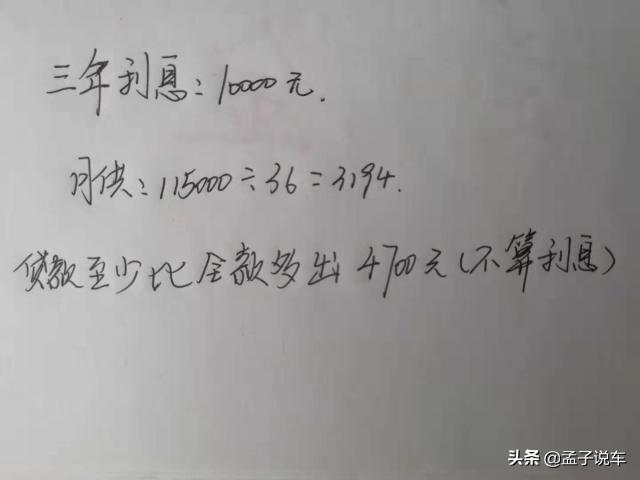 三年利息：10000元.
月供：115000÷36=3194.
贷款至少比全款多出4700元(不算利息)
头条 @孟子说车